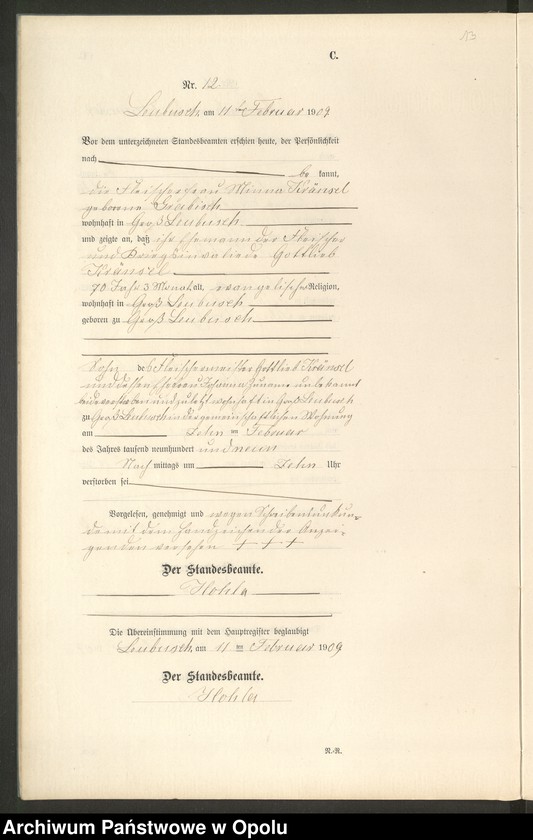 13
C.
Nr. 12
Leubusch, am 11ten Februar 1909
Vor dem unterzeichneten Standesbeamten erschien heute, der Persönlichkeit
nach
be kannt,
die Fleischerfrau Minna Kränsel
geborene
wohnhaft in Groß Leubusch
und zeigte an, daß ihr Ehemann der Fleischer
und Kriegsinvalide Gottlieb
Kränsel
70 Jahr 3 Monat alt, evangelischer Religion,
wohnhaft in Groß Leubusch
geboren zu Groß Leubusch
Sohn des Fleischermeister Gottlieb Kränsel
und dessen Ehefrau Johanna Zuname unbekannt
beide verstorben und zuletzt wohnhaft in Groß Leubusch
zu Groß Leubusch in der gemeinschaftlichen Wohnung
am Zehnten Februar
des Jahres tausend neunhundert und neun
Nach mittags um Zehn Uhr
verstorben sei.
Vorgelesen, genehmigt und wegen Schreibensunkun-
de mit dem Handzeichen der Anzei-
genden versehen + + +
Der Standesbeamte.
Hohla
Die Übereinstimmung mit dem Hauptregister beglaubigt
Leubusch, am 11ten Februar 1909
Der Standesbeamte.
Hohla
N.-R.
Archiwum Państwowe w Opolu